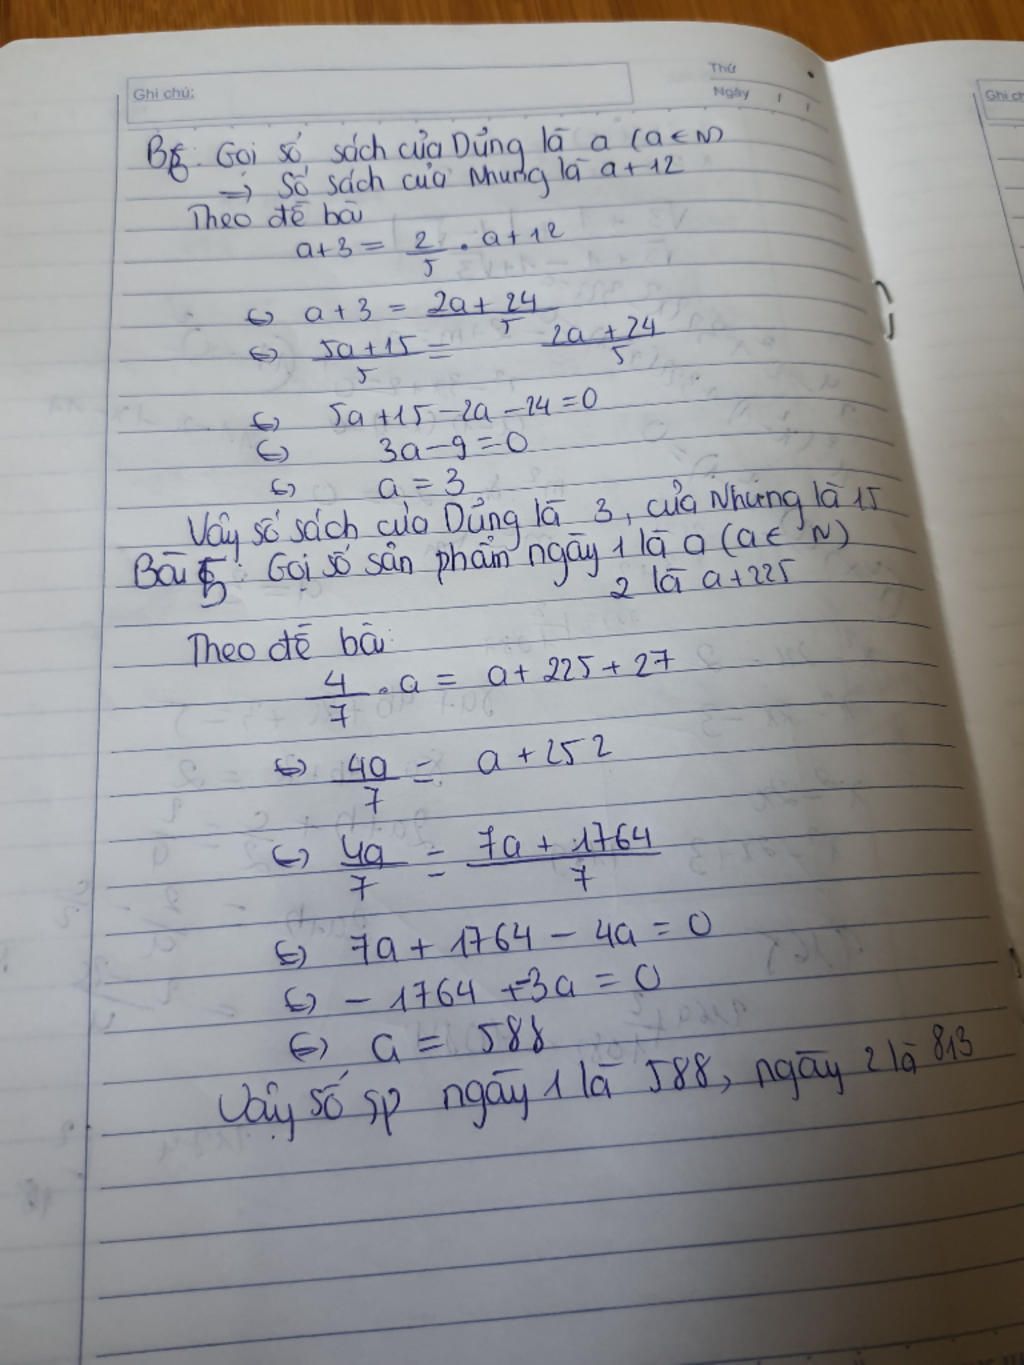 Ghi chú:
Thứ
Ngày
Ghi ch
B6: Gọi số sách của Dũng là a (a ∈ N)
=> Số sách của Nhung là a+12
Theo đề bài
a+3 = 2/5 . a+12
<=> a+3 = 2a+24/5
<=> 5a+15/5 = 2a+24/5
<=> 5a+15-2a-24=0
<=> 3a-9=0
<=> a=3
Vậy số sách của Dũng là 3, của Nhung là 15
Bài 5: Gọi số sản phẩm ngày 1 là a (a ∈ N)
2 là a+225
Theo đề bài:
4/7 . a = a+225+27
<=> 4a/7 = a+252
<=> 4a/7 = 7a+1764/7
<=> 7a+1764-4a=0
<=> -1764+3a=0
<=> a=588
Vậy số sp ngày 1 là 588, ngày 2 là 813